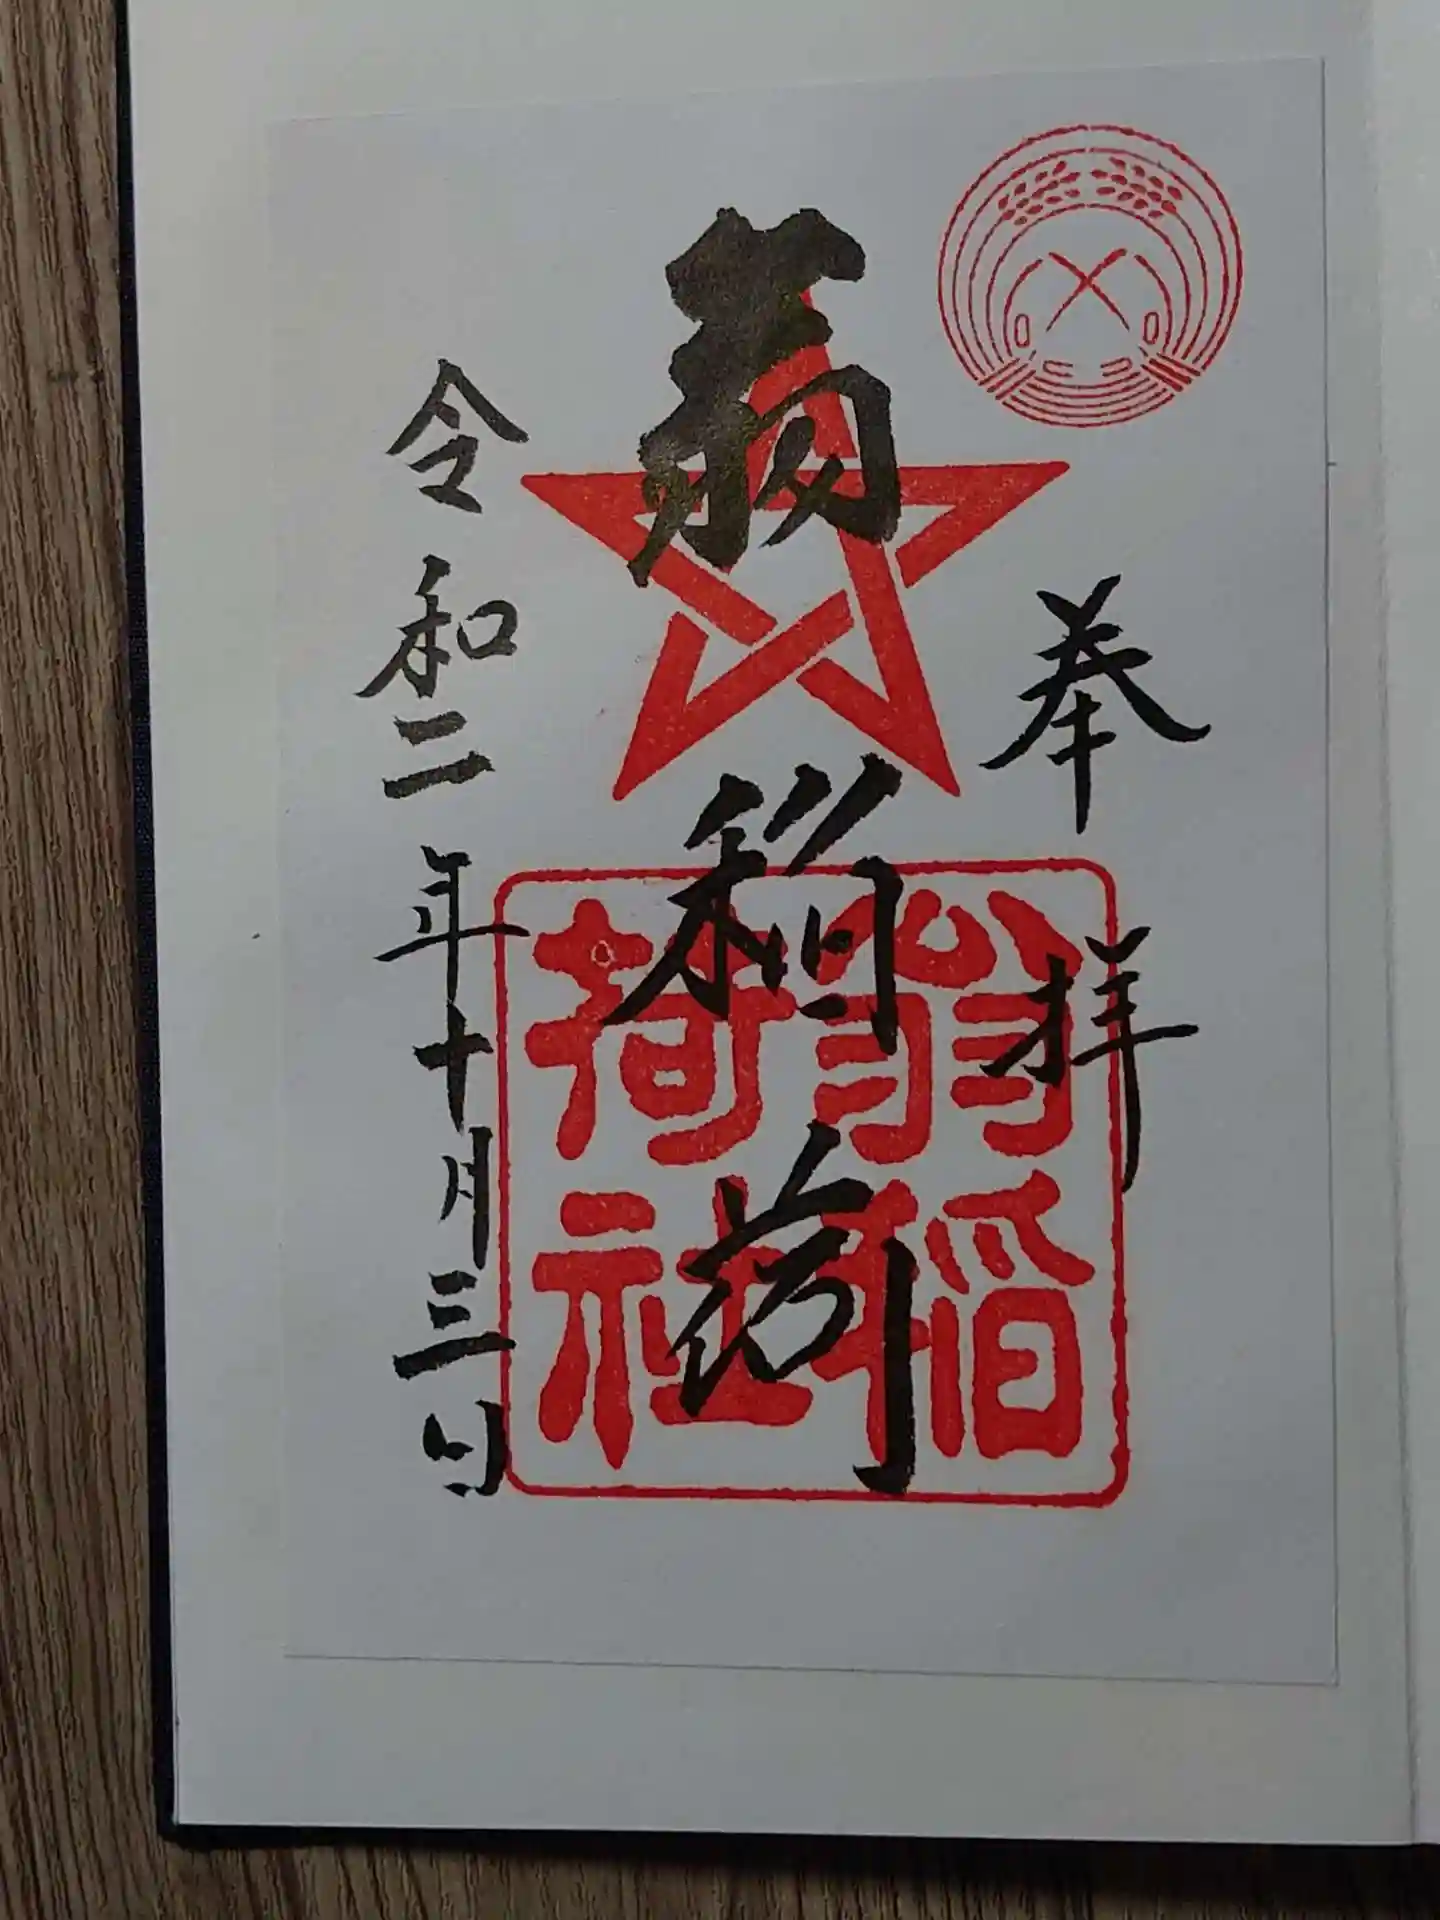 奉拝
翁稲荷
翁稲
荷社
令和二年十月三日